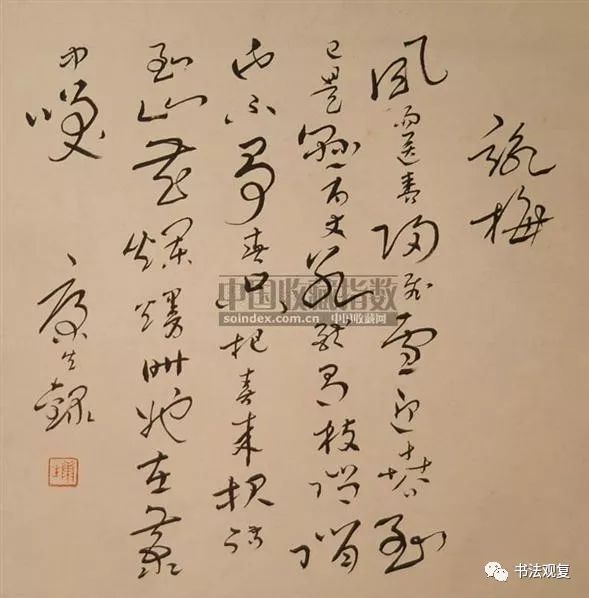 詠梅
風雨送春歸飛雪迎春到
已是懸崖百丈冰猶有花枝俏俏
也不爭春只把春來報待
到山花爛熳時她在叢
中咲
康生錄
康生
中国收藏指数
soindex.com.cn 中国收藏网
书法观复